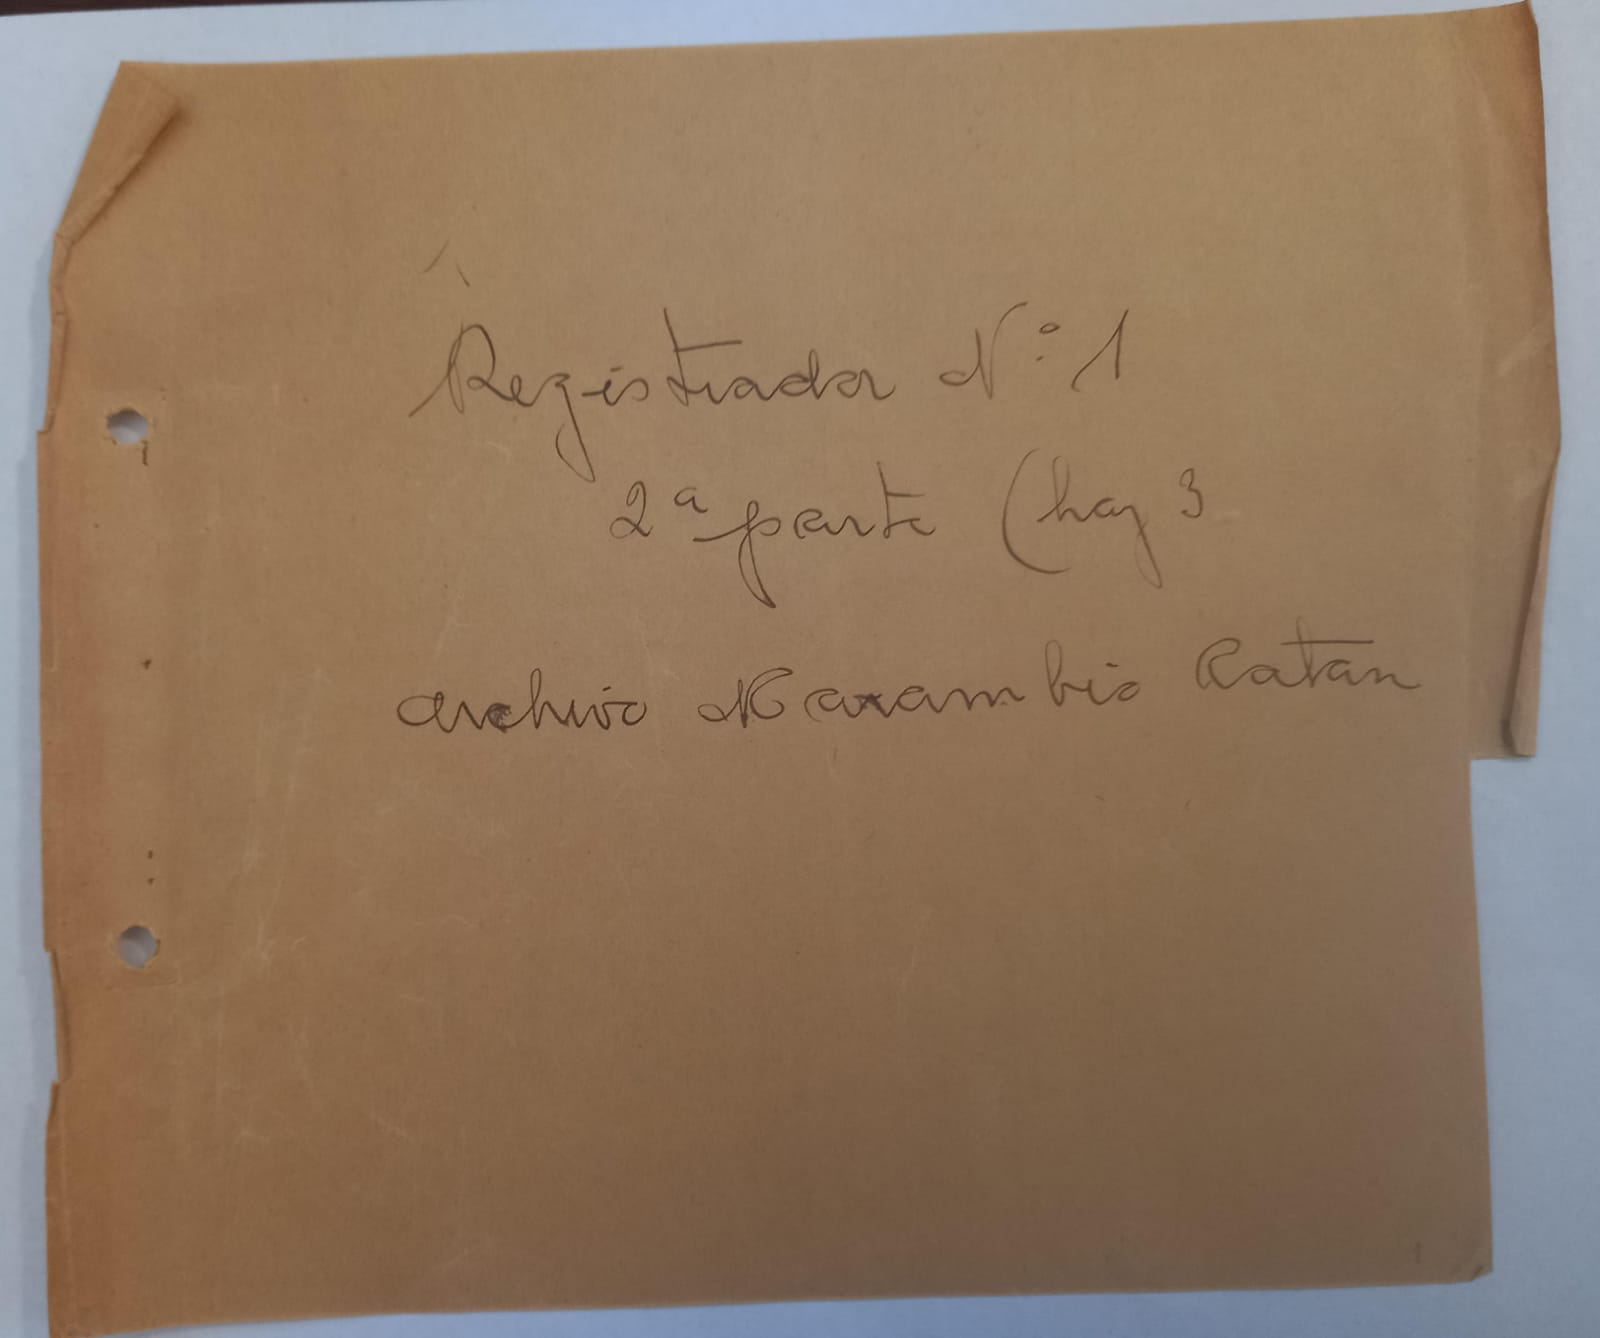 Registrador Nº 1
2ª parte (hay 3
archivo Marambio Catan